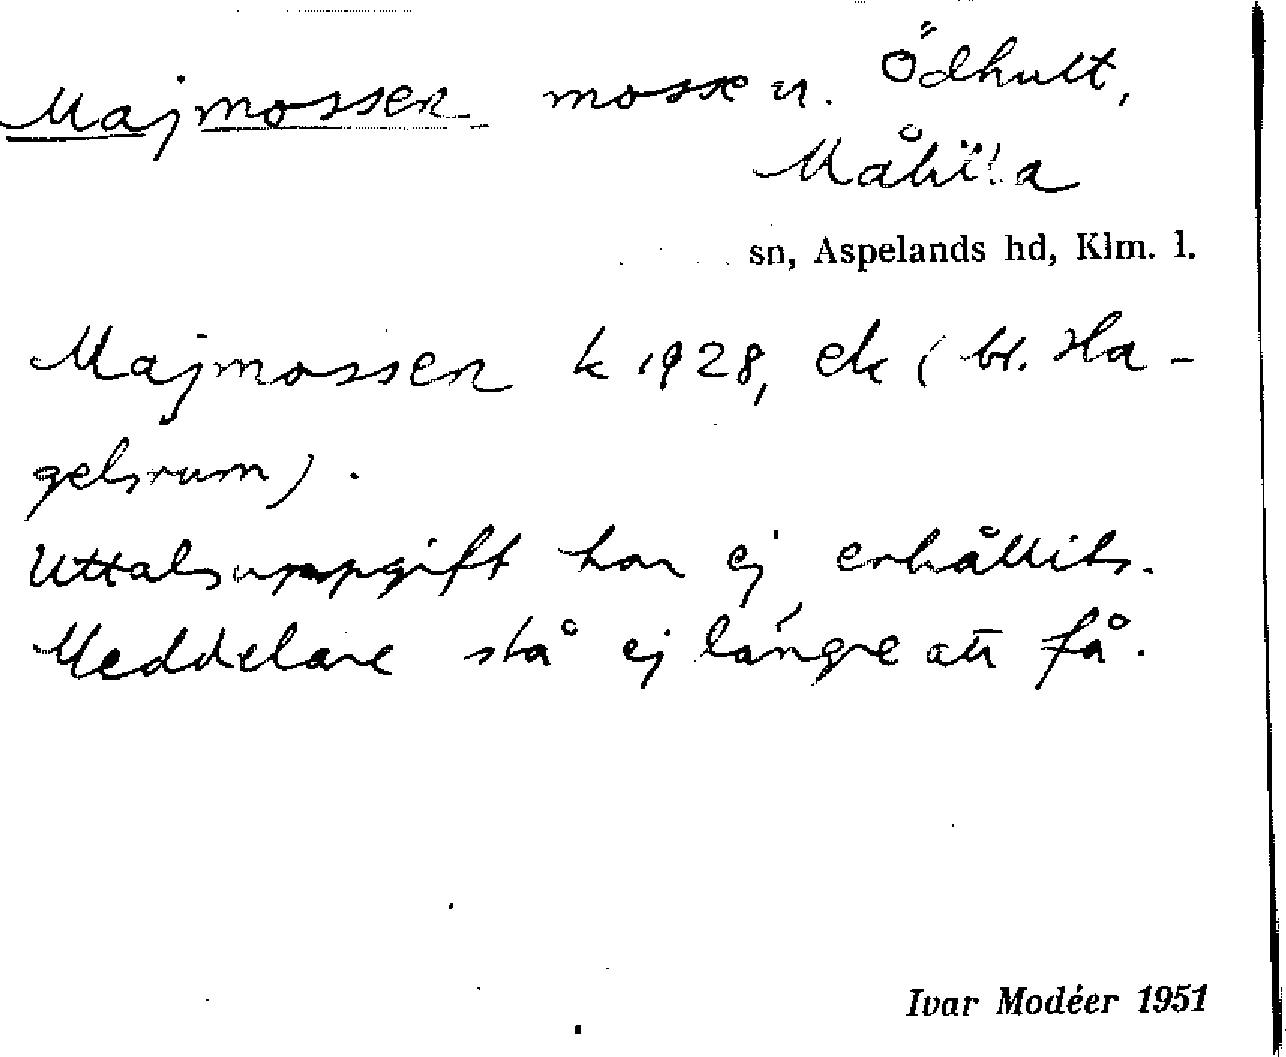 Majmossen mosse u. Ödhult,
Målilla
sn, Aspelands hd, Klm. l.
Majmossen k 1928, ek (bl. Ha-
gelsrum).
Uttalsuppgift har ej erhållits.
Meddelare stå ej längre att få.
Ivar Modéer 1951